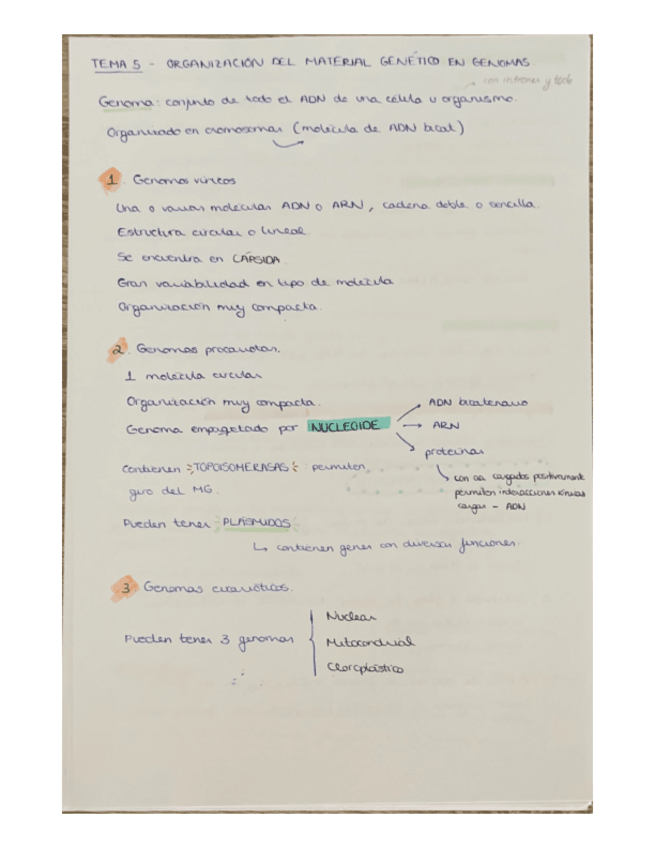 TEMA 5 - ORGANIZACIÓN DEL MATERIAL GENÉTICO EN GENOMAS
con intrones y todo
Genoma: conjunto de todo el ADN de una célula u organismo.
Organizado en cromosomas (molécula de ADN bicat)
1. Genomas víricos
Una o varias moléculas ADN o ARN, cadena doble o sencilla.
Estructura circular o lineal
Se encuentra en CÁPSIDA.
Gran variabilidad en tipo de molécula
Organización muy compacta.
2. Genomas procariotas.
1 molécula circular
Organización muy compacta.
Genoma empaquetado por NUCLEOIDE
→ ADN bicatenario
→ ARN
→ proteínas
↳ con aa cargados positivamente
permiten interacciones
cargas - ADN
Contienen TOPOISOMERASAS: permiten
giro del MG.
Pueden tener PLÁSMIDOS
↳ contienen genes con diversas funciones.
3 Genomas eucarióticos.
Pueden tener 3 genomas
Nuclear
Mitocondrial
Cloroplástico